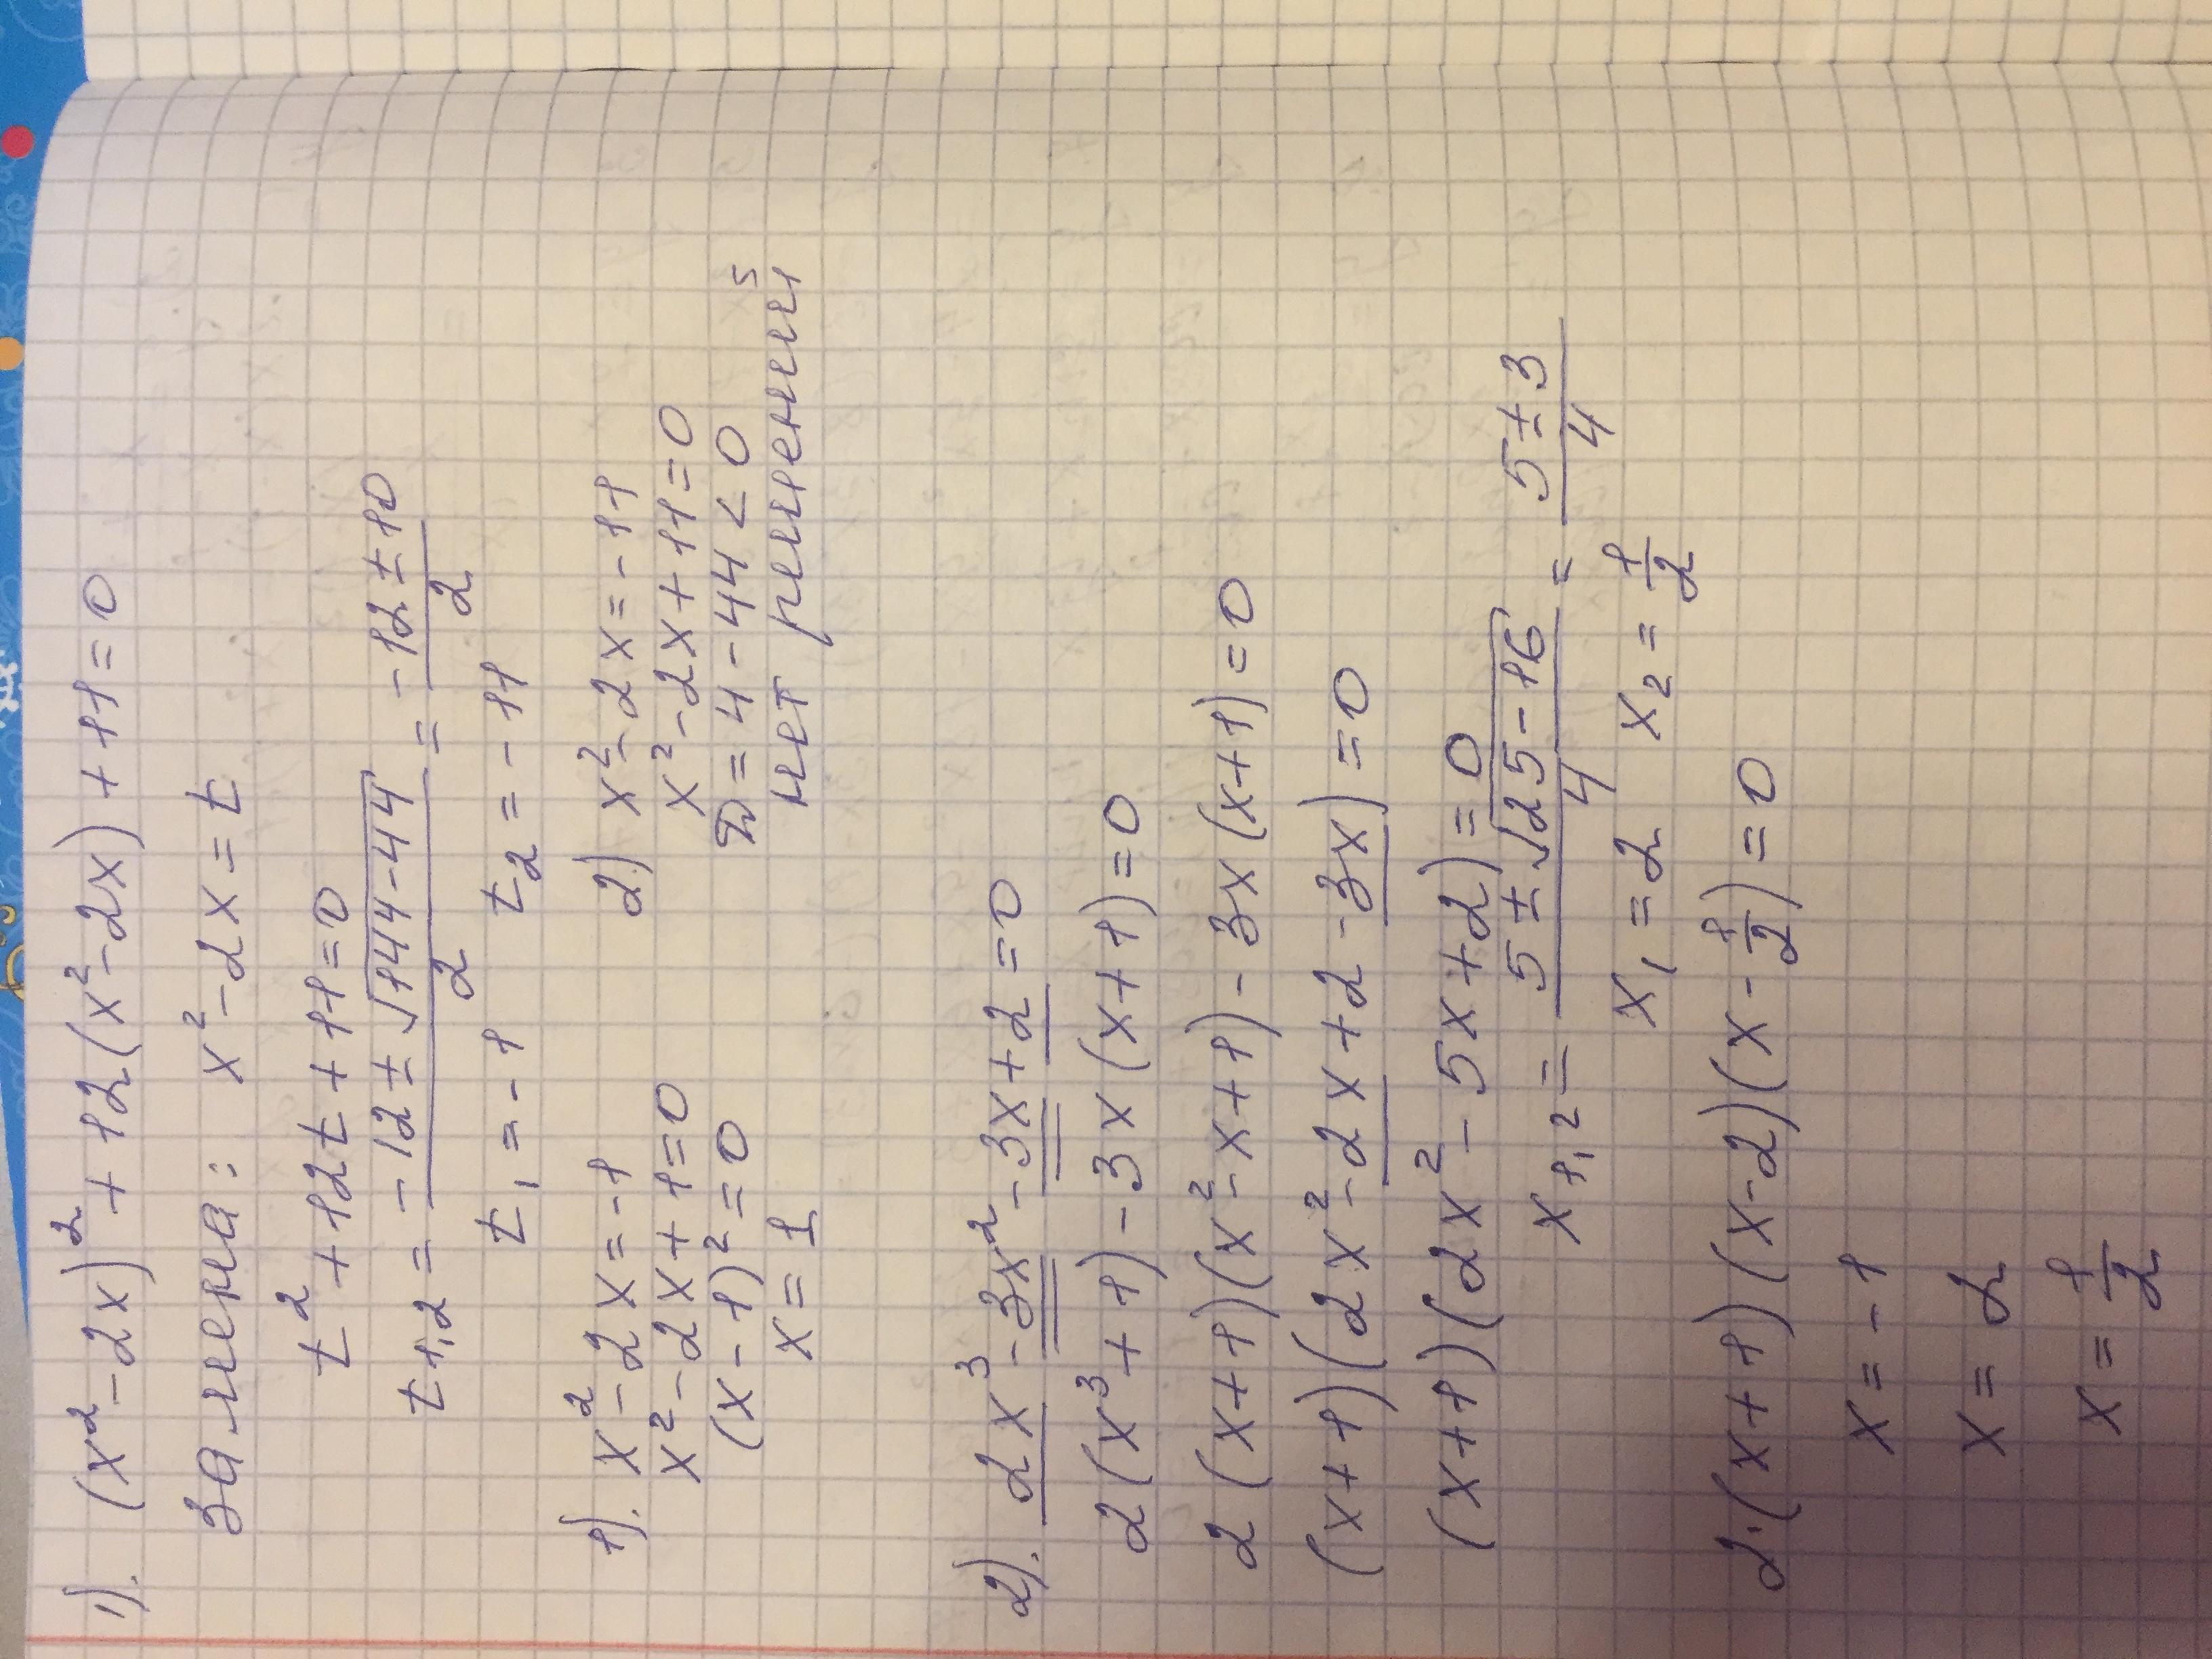 1). (x²-2x)² + 12(x²-2x) + 11 = 0
замена: x²-2x = t
t² + 12t + 11 = 0
t₁,₂ = (-12 ± √(144-44))/2 = (-12 ± 10)/2
t₁ = -1 t₂ = -11
1). x²-2x = -1 2) x²-2x = -11
x²-2x+1=0 x²-2x+11=0
(x-1)² = 0 D = 4-44 < 0
x = 1 нет решений
2). 2x³ - 3x² - 3x + 2 = 0
2(x³+1) - 3x(x+1) = 0
2(x+1)(x²-x+1) - 3x(x+1) = 0
(x+1)(2x²-2x+2-3x) = 0
(x+1)(2x²-5x+2) = 0
x₁,₂ = (5 ± √(25-16))/4 = (5 ± 3)/4
x₁ = 2 x₂ = 1/2
2·(x+1)(x-2)(x-1/2) = 0
x = -1
x = 2
x = 1/2